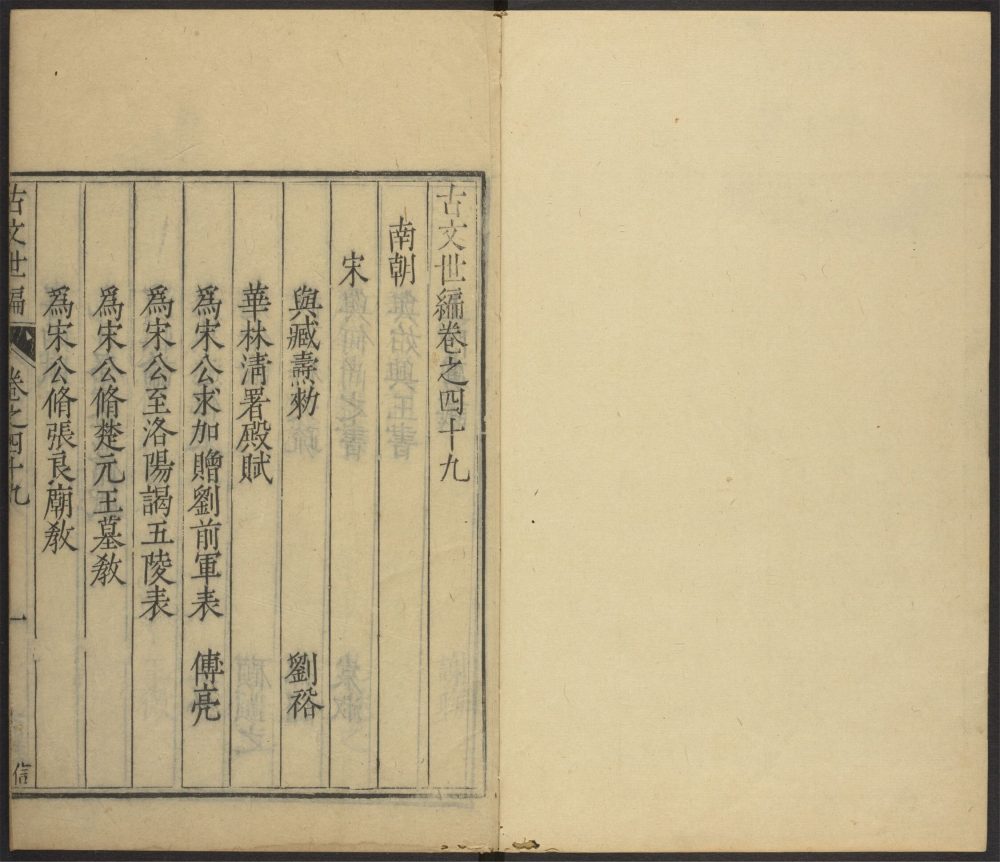 古文世編卷之四十九
南朝
宋
與臧燾勑 劉裕
華林清署殿賦
爲宋公求加贈劉前軍表 傅亮
爲宋公至洛陽謁五陵表
爲宋公脩楚元王墓教
爲宋公脩張良廟教
古文世編 卷之四十九 一 信